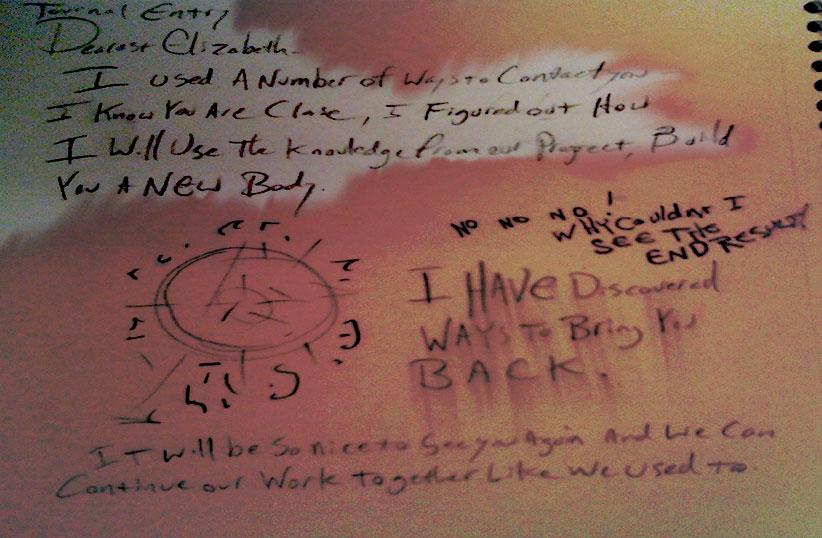 Journal Entry
Dearest Elizabeth
I used A Number of Ways to Contact you
I Know You Are Close, I Figured out How
I Will Use The Knowledge from our Progect, Build
You A NEW Body.
NO NO NO! WHY Couldnt I
SEE THE
END RESULT!
I HAVE Discovered
WAYS To Bring You
BACK.
IT will be So nice to See you Again And We Can
Continue our Work Together Like We used to.